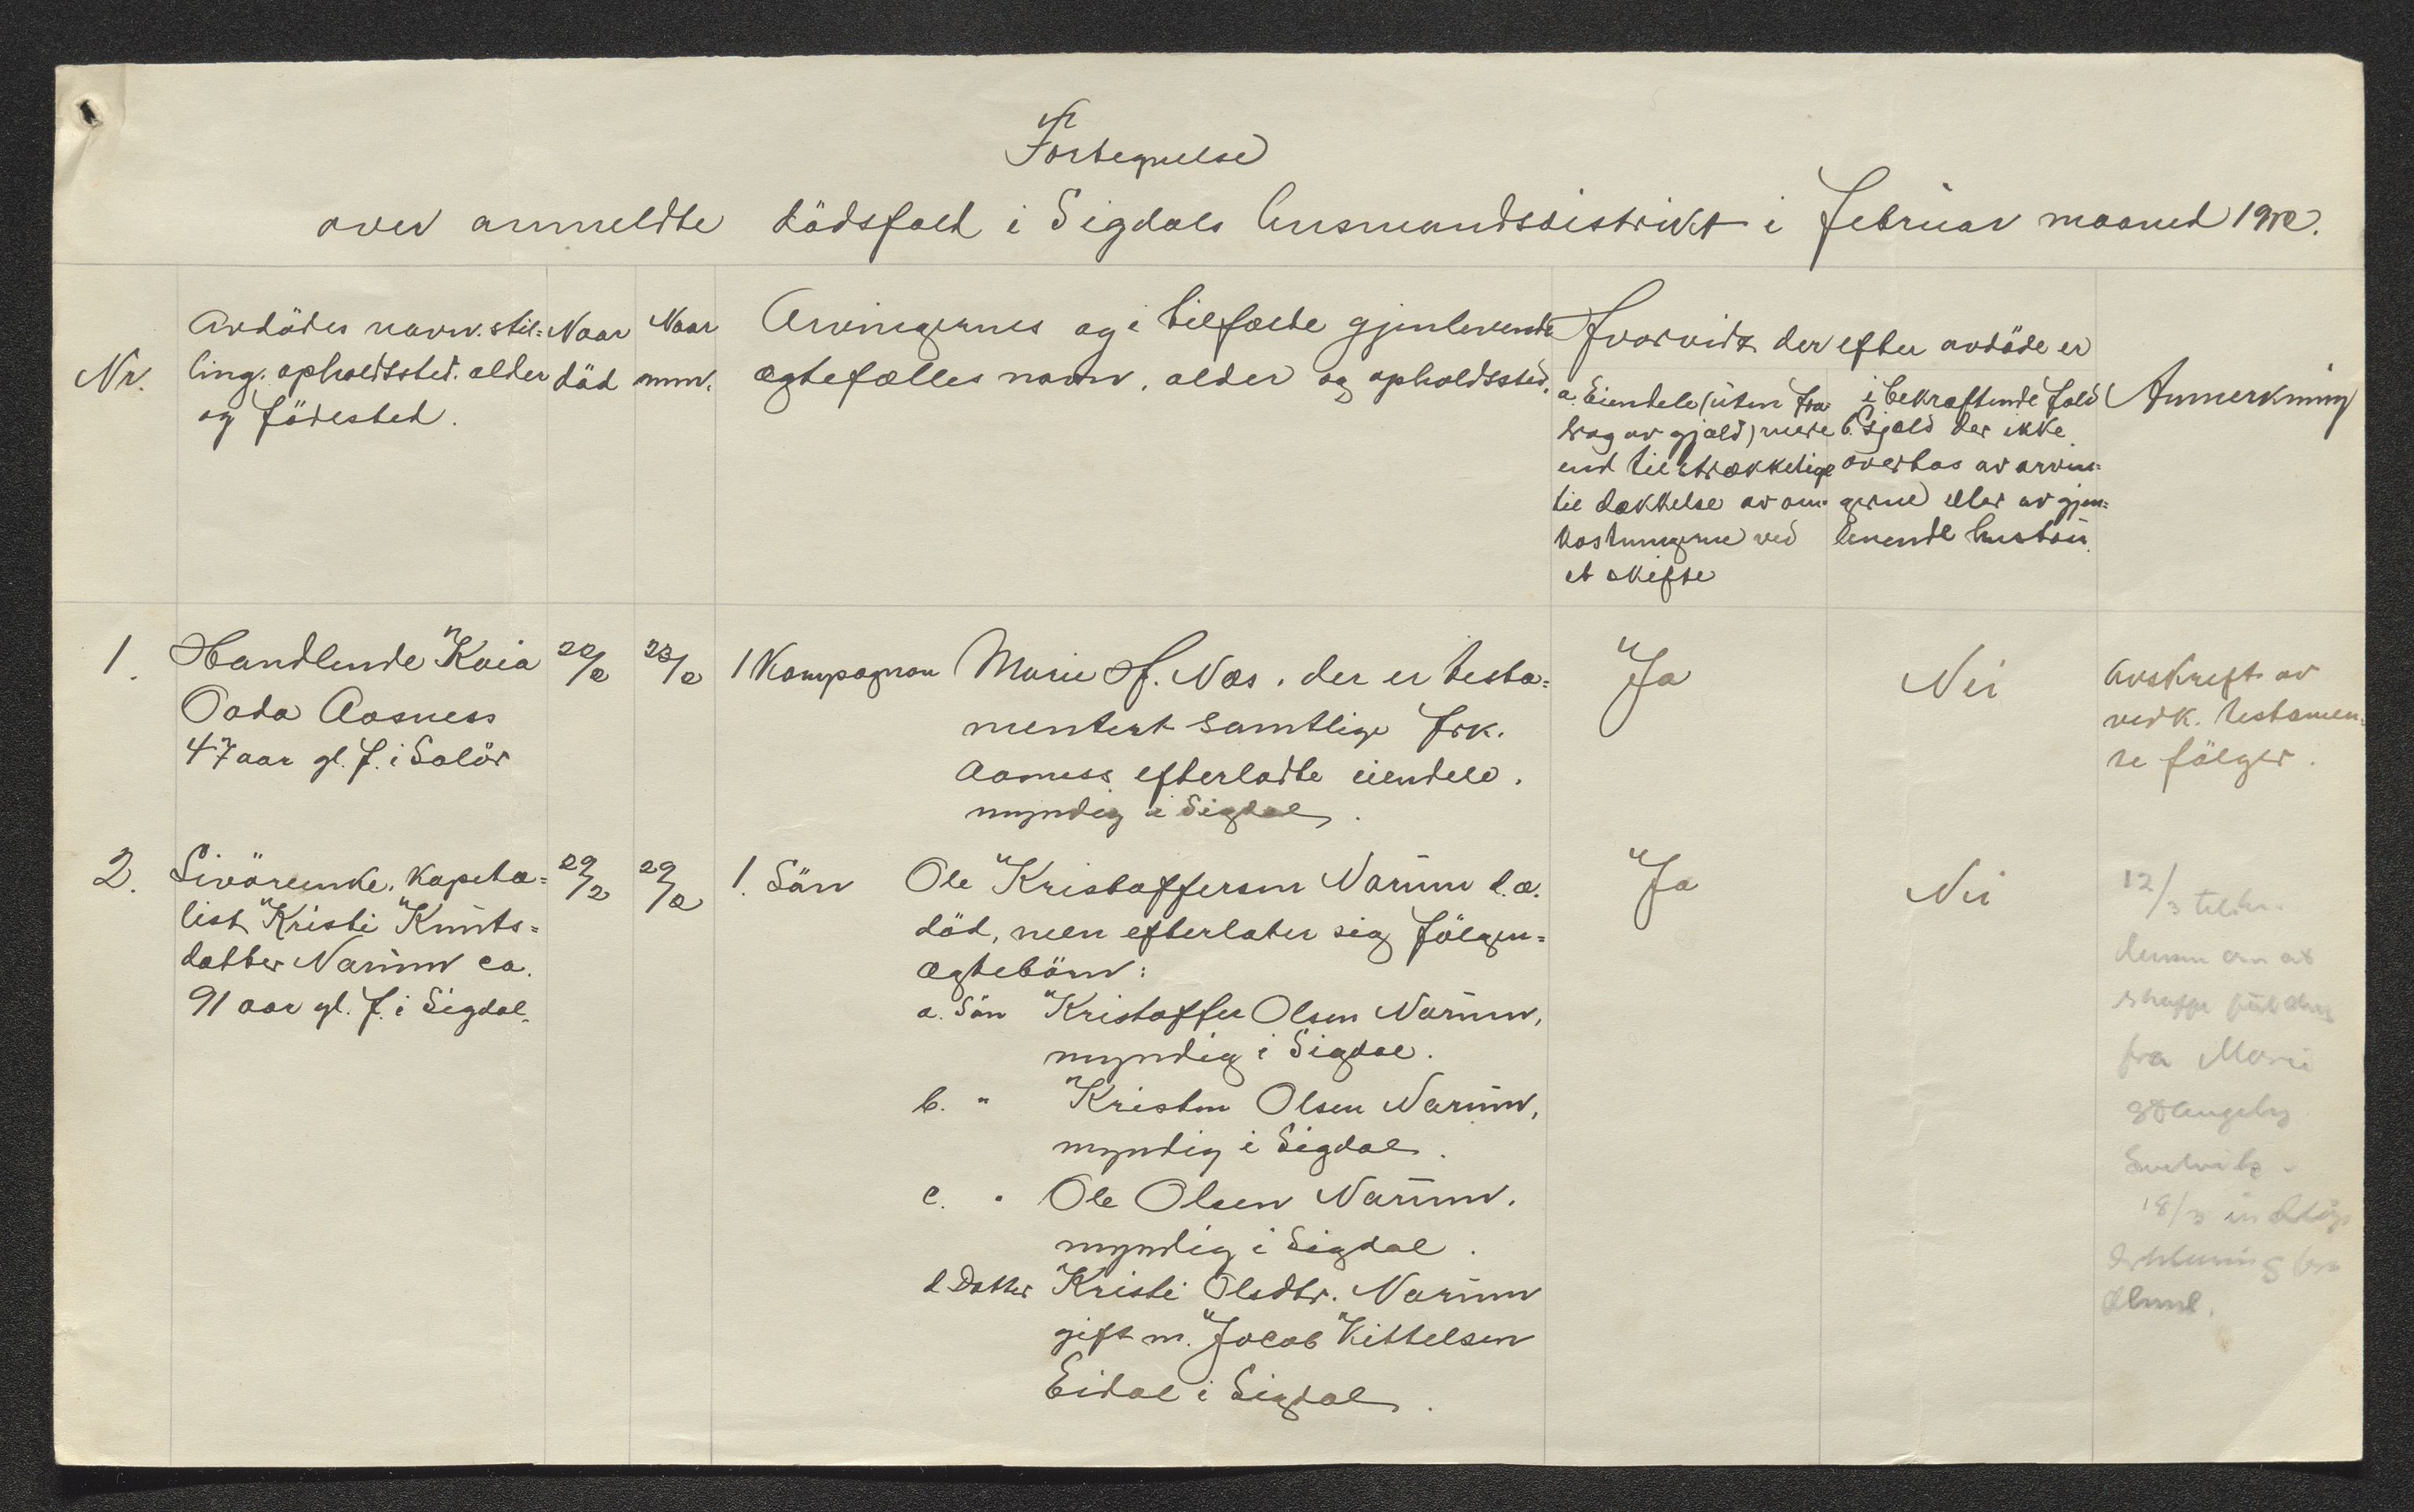 Fortegnelse
over anmeldte dödsfald i Sigdals lensmandsdistrikt i februar maaned 1912.
Nr.
Avdödes navn. stil=
ling. opholdssted. alder
og födested.
Naar
död
Naar
anm.
Arvingernes og i tilfælde gjenlevende
ægtefælles navn, alder og opholdssted.
Hvorvidt der efter avdöde er
a. Eiendele (uten fra
drag av gjæld) mere
end tilstrækkelige
til dækkelse av om=
kostningerne ved
et skifte
i bekræftende fald
b. Gjæld der ikke
overtas av arvin=
gerne eller av gjen=
levende hustru.
Anmerkning
1.
Handlende Kaia
Oada Aasness
47 aar gl. f. i Solör
22/2
23/2
1 Kompagnon Marie H. Næs, der er testa=
mentert samtlige frk.
Aasness efterladte eiendele.
myndig i Sigdal.
Ja
Nei
Avskrift av
vedk. testamen=
te fölger.
2.
Livörende, kapita=
list Kristi Knuts=
datter Narum ca.
91 aar gl. f. i Sigdal.
29/2
29/2
1. Sön Ole Kristoffersen Narum d.æ.
död, men efterlater sig fölgen=
ægtebörn:
a. Sön Kristoffer Olsen Narum,
myndig i Sigdal.
b. " Kristen Olsen Narum,
myndig i Sigdal.
c. " Ole Olsen Narum.
myndig i Sigdal.
d Datter Kristi Olsdtr. Narum
gift m. Jacob Kittelsen
Eidal i Sigdal.
Ja
Nei
12/3
om at
skaffe
fra Marie
18/3